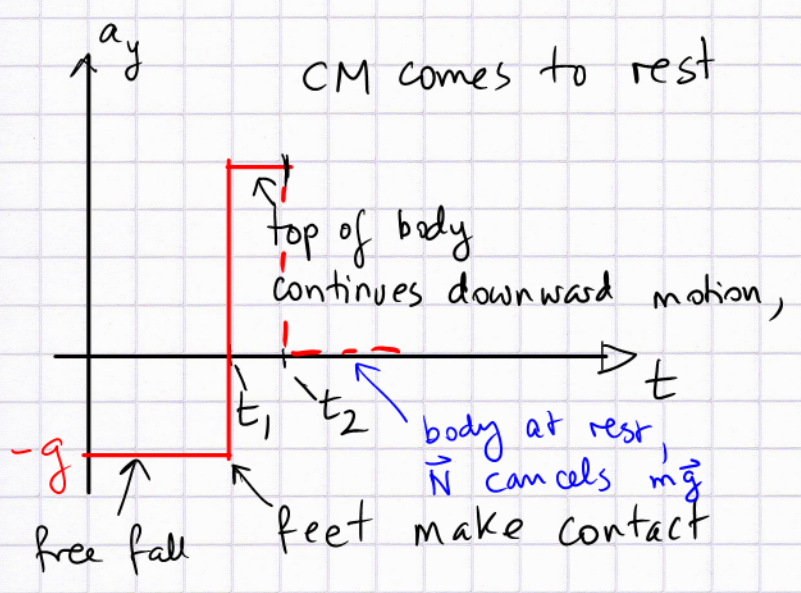 a_y
CM comes to rest
top of body
continues downward motion,
t
t₁
t₂
body at rest,
N⃗ cancels mg⃗
-g
feet make contact
free fall